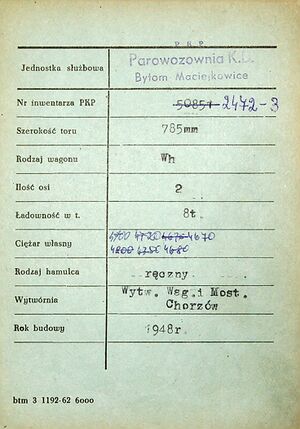 P. K. P.
Jednostka służbowa Parowozownia K.D.
Bytom Maciejkowice
Nr inwentarza PKP 50851 2472-3
Szerokość toru 785mm
Rodzaj wagonu Wh
Ilość osi 2
Ładowność w t. 8t.
Ciężar własny 4900 4720 4675 4670
4800 4750 4680
Rodzaj hamulca ręczny
Wytwórnia Wytw. Wag.i Most.
Chorzów
Rok budowy 1948r.
btm 3 1192-62 6000